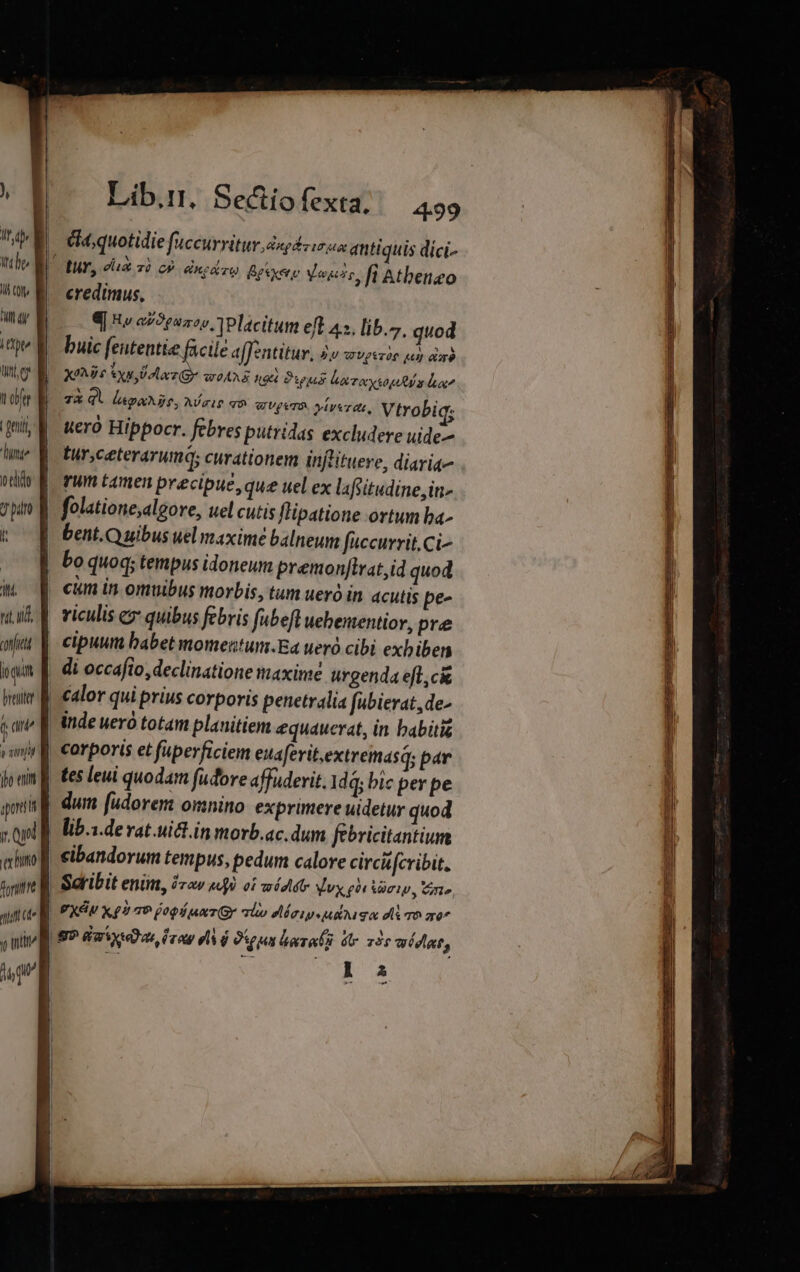 Lib.II. Sectio sexta. 499
cia, quotidie succurritur, ἀκράτισμα antiquis dici-
tur, διὰ τὸ ἐν ἀκράτῳ βρέχειν ψωμὸς, si Atheneo
credimus.
¶ Ἢν ἄνθρωπον.] Placitum est 42. lib.7. quod
huic sententiæ facile assentitur, ἢν πυρετὸς μὴ ἀπὸ
χολῆς ἔχῃ, ὕδατος πολλοῦ καὶ θερμοῦ καταχεομένου κα-
τὰ τῆς κεφαλῆς, λύσις τοῦ πυρετοῦ γίνεται. Vtrobiq;
uerò Hippocr. febres putridas excludere uide-
tur, cæterarumq; curationem instituere, diaria-
rum tamen præcipuè, quæ uel ex lassitudine, in-
solatione, algore, uel cutis stipatione ortum ha-
bent. Quibus uel maximè balneum succurrit. Ci-
bo quoq; tempus idoneum præmonstrat, id quod
cùm in omnibus morbis, tum uerò in acutis pe-
riculis & quibus febris subest uehementior, præ
cipuum habet momentum. Ea uerò cibi exhiben
di occasio, declinatione maximè urgenda est, cũ
calor qui prius corporis penetralia subierat, de-
inde uerò totam planitiem æquauerat, in habitũ
corporis et superficiem euaserit, extremasq; par
tes leui quodam sudore affuderit. Idq; hic per pe
dum sudorem omnino exprimere uidetur quod
lib.1. de rat. uict. in morb. ac. dum febricitantium
cibandorum tempus, pedum calore circũscribit.
Scribit enim, ὅταν μὲν οἱ πόδες ψυχροὶ ἔωσιν, ἐπι-
σχεῖν χρὴ τοῦ ῥοφήματος τὴν δόσιν, μάλιστα δὲ τοῦ πο-
τοῦ ἀπέχεσθαι, ὅταν δὲ ἡ θέρμη καταβῇ ἐς τὸς πόδας,
l 2